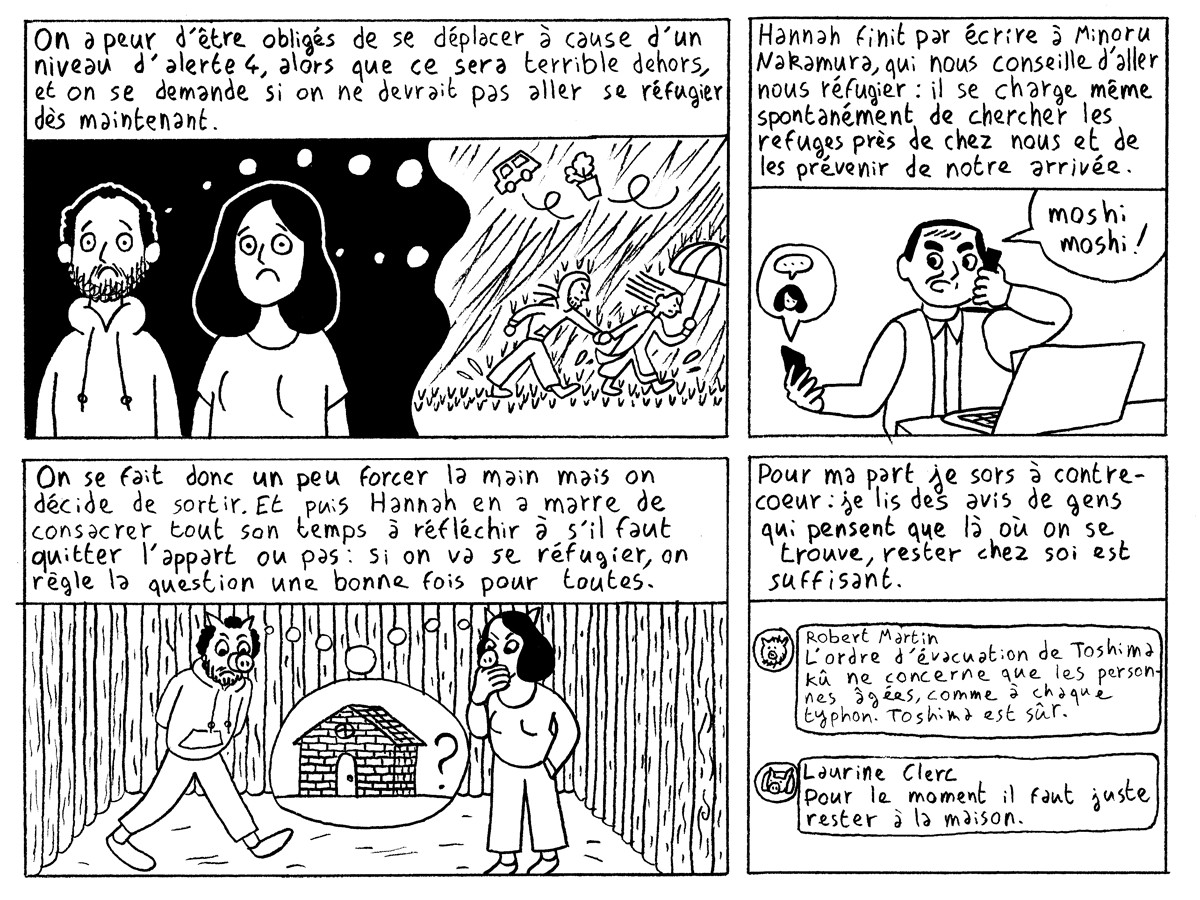 On a peur d'être obligés de se déplacer à cause d'un
niveau d'alerte 4, alors que ce sera terrible dehors,
et on se demande si on ne devrait pas aller se réfugier
dès maintenant.
Hannah finit par écrire à Minoru
Nakamura, qui nous conseille d'aller
nous réfugier : il se charge même
spontanément de chercher les
refuges près de chez nous et de
les prévenir de notre arrivée.
moshi
moshi !
...
On se fait donc un peu forcer la main mais on
décide de sortir. Et puis Hannah en a marre de
consacrer tout son temps à réfléchir à s'il faut
quitter l'appart ou pas : si on va se réfugier, on
règle la question une bonne fois pour toutes.
?
Pour ma part je sors à contre-
coeur : je lis des avis de gens
qui pensent que là où on se
trouve, rester chez soi est
suffisant.
Robert Martin
L'ordre d'évacuation de Toshima
kû ne concerne que les person-
nes âgées, comme à chaque
typhon. Toshima est sûr.
Laurine Clerc
Pour le moment il faut juste
rester à la maison.